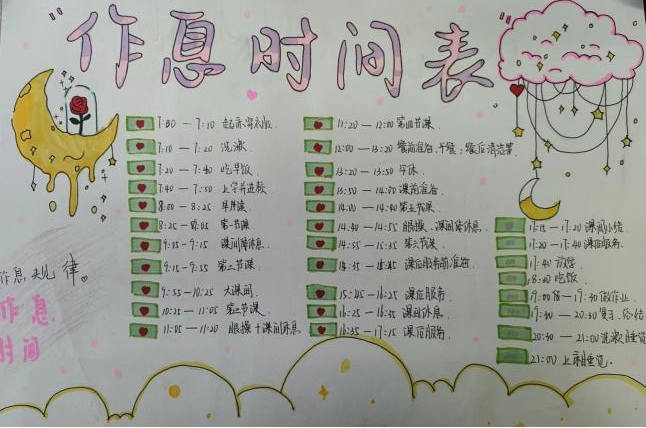 作息时间表
7:00 — 7:10 起床穿衣服.
7:10 — 7:20 洗漱
7:20 — 7:40 吃早饭.
7:40 — 7:50 上学并进校
8:00 — 8:25 早读
8:25 — 9:05 第一节课.
9:05 — 9:15 课间休息.
9:15 — 9:55 第二节课.
9:55 — 10:25 大课间.
10:25 — 11:05 第三节课.
11:05 — 11:20 眼操+课间休息.
11:20 — 12:00 第四节课.
12:00 — 13:20 餐前准备、午餐、餐后清洁等.
13:20 — 13:50 午休.
13:50 — 14:00 课前准备.
14:00 — 14:40 第五节课.
14:40 — 14:55 眼操、课间休息.
14:55 — 15:35 第六节课.
15:35 — 15:45 课后服务前准备.
15:45 — 16:25 课后服务.
16:25 — 16:35 课间休息.
16:35 — 17:15 课后服务.
17:15 — 17:20 课间休息
17:20 — 17:40 课后服务.
17:40 放学.
18:30 吃饭.
19:00 — 19:30 做作业.
19:30 — 20:30 复习、总结
20:30 — 21:00 洗漱、睡觉
21:00 上床睡觉.
作息规律。
作息
时间